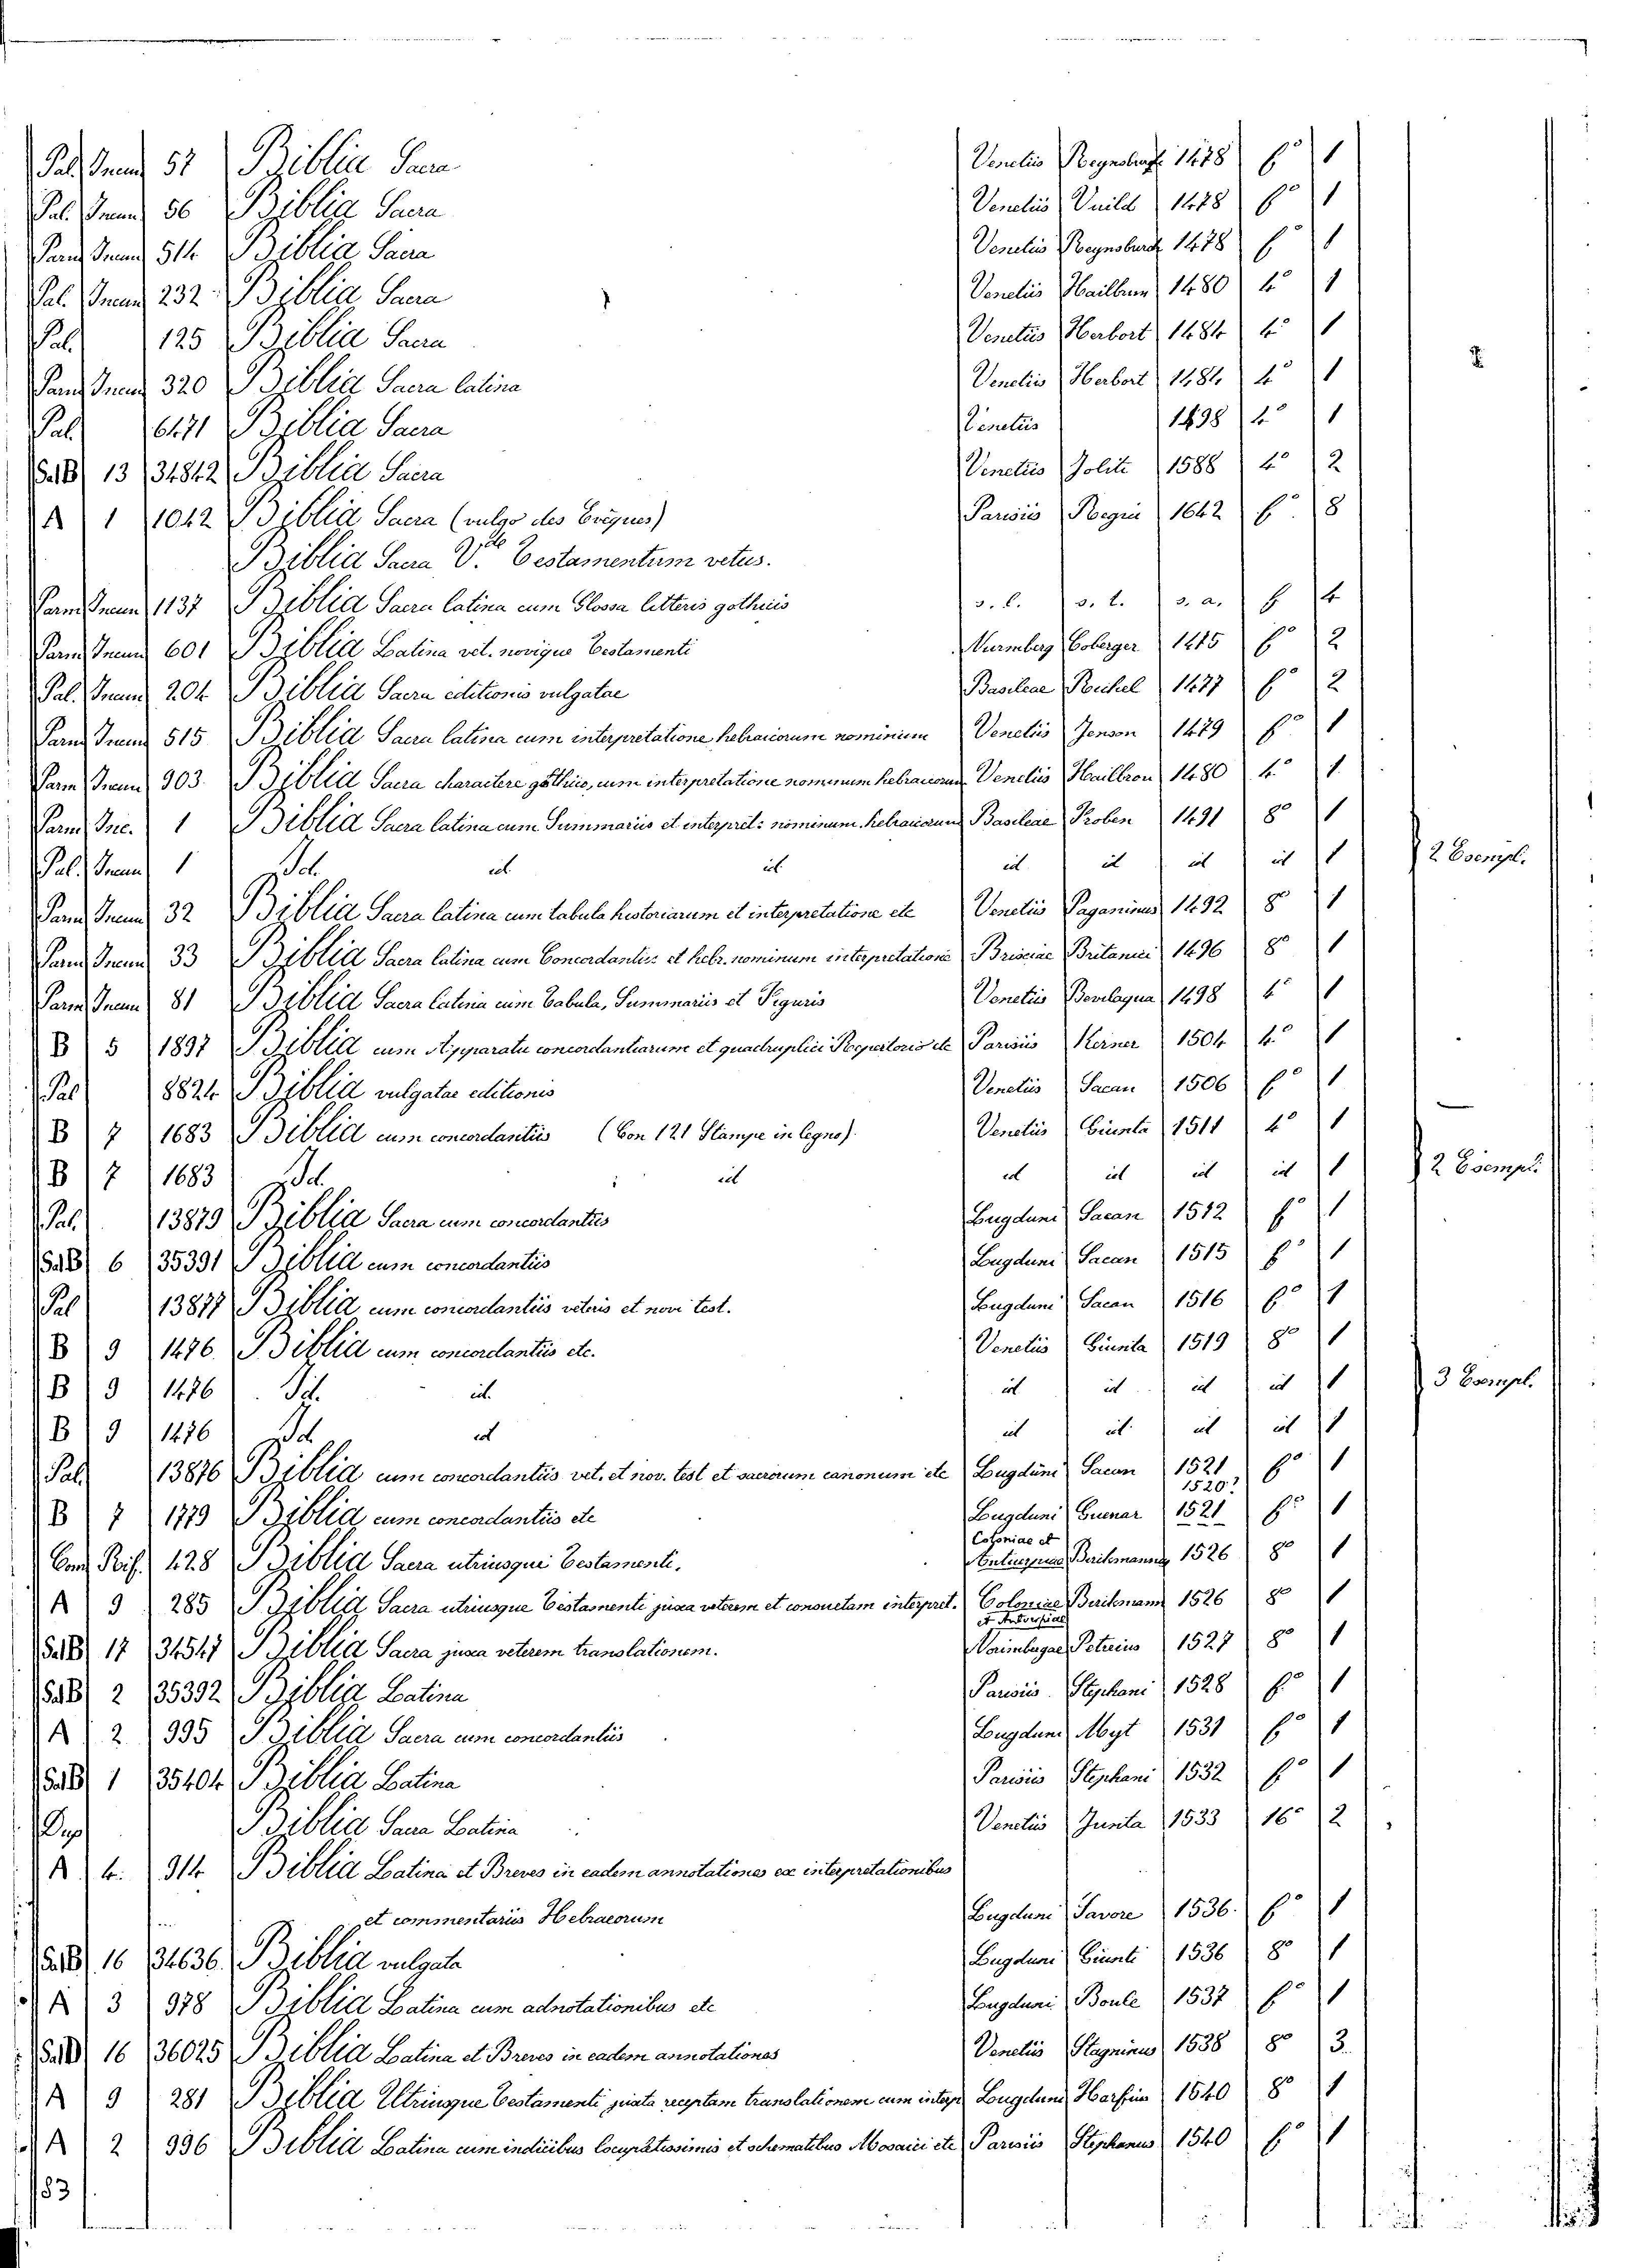 Pal. Incun 57 Biblia Sacra Venetiis Reynsburch 1478 f° 1
Pal. Incun 56 Biblia Sacra Venetiis Vuild 1478 f° 1
Parm Incun 514 Biblia Sacra Venetiis Reynsburch 1478 f 1
Pal. Incun 232 Biblia Sacra Venetiis Hailbrun 1480 4° 1
Pal. 125 Biblia Sacra Venetiis Herbort 1484 4° 1
Parm Incun 320 Biblia Sacra latina Venetiis Herbort 1484 4° 1
Pal. 6471 Biblia Sacra Venetiis 1498 4° 1
S.B 13 34842 Biblia Sacra Venetiis Joliti 1588 4° 2
A 1 1042 Biblia Sacra (vulgo des Evêques) Parisiis Regia 1642 f° 8
Biblia Sacra V.de Testamentum vetus.
Parm Incun 1137 Biblia Sacra latina cum Glossa litteris gothicis s. l. s. t. s. a. f 4
Parm Incun 601 Biblia Latina vet. novique Testamenti Nurmberg Coberger 1475 f° 2
Pal. Incun 204 Biblia Sacra editionis vulgatae Basileae Reichel 1477 f° 2
Parm Incun 515 Biblia Sacra latina cum interpretatione hebraicorum nominum Venetiis Jenson 1479 f° 1
Parm Incun 903 Biblia Sacra charactere gothico, cum interpretatione nominum hebraicorum Venetiis Hailbron 1480 4° 1
Parm Inc. 1 Biblia Sacra latina cum Summariis et interpret: nominum hebraicorum Basileae Froben 1491 8° 1
Pal. Incun 1 Id. id. id. id id id id 1 2 Esempl.
Parm Incun 32 Biblia Sacra latina cum tabula historiarum et interpretatione etc Venetiis Paganinus 1492 8° 1
Parm Incun 33 Biblia Sacra latina cum Concordantiis et hebr. nominum interpretatione Brisciae Britanici 1496 8° 1
Parm Incun 81 Biblia Sacra latina cum Tabula, Summariis et Figuris Venetiis Bevilaqua 1498 4° 1
B 5 1897 Biblia cum Apparatu concordantiarum et quadruplici Repertorio etc Parisiis Kerner 1504 4° 1
Pal 8824 Biblia vulgatae editionis Venetiis Sacan 1506 f° 1
B 7 1683 Biblia cum concordantiis (Con 121 Stampe in legno) Venetiis Giunta 1511 4° 1
B 7 1683 Id. id id id id id 1 2 Esempl.
Pal. 13879 Biblia Sacra cum concordantiis Lugduni Sacan 1512 f° 1
S.B 6 35391 Biblia cum concordantiis Lugduni Sacan 1515 f° 1
Pal 13877 Biblia cum concordantiis veteris et novi test. Lugduni Sacan 1516 f° 1
B 9 1476 Biblia cum concordantiis etc. Venetiis Giunta 1519 8° 1
B 9 1476 Id. id. id id id id 1 3 Esempl.
B 9 1476 Id id id id id id 1
Pal 13876 Biblia cum concordantiis vet. et nov. test et sacrorum canonum etc Lugduni Sacon 1521 f° 1
1520?
B 7 1779 Biblia cum concordantiis etc Lugduni Guenar 1521 f° 1
428 Biblia Sacra utriusque Testamenti. Coloniae et Antuerpiae Berikmannus 1526 8° 1
A 9 285 Biblia Sacra utriusque Testamenti juxta veterem et consuetam interpret. Coloniae Berikmann 1526 8° 1
et Antverpiae
S.B 17 34547 Biblia Sacra juxa veterem translationem. Norimbergae Petreius 1527 8° 1
S.B 2 35392 Biblia Latina Parisiis Stephani 1528 f° 1
A 2 995 Biblia Sacra cum concordantiis Lugduni Myt 1531 f° 1
S.B 1 35404 Biblia Latina Parisiis Stephani 1532 f° 1
Dup Biblia Sacra Latina Venetiis Junta 1533 16° 2
A 4. 914 Biblia Latina et Breves in eadem annotationes ex interpretationibus
et commentariis Hebraeorum Lugduni Savore 1536. f° 1
S.B 16 34636 Biblia vulgata Lugduni Giunti 1536 8° 1
A 3 978 Biblia Latina cum adnotationibus etc Lugduni Boule 1537 f° 1
S.B 16 36025 Biblia Latina et Breves in eadem annotationes Venetiis Stagninus 1538 8° 3.
A 9 281 Biblia Utriusque Testamenti juxta receptam translationem cum interp Lugduni 1540 8° 1
A 2 996 Biblia Latina cum indicibus locupletissimis et schematibus Mosaici etc Parisiis Stephanus 1540 f° 1
83